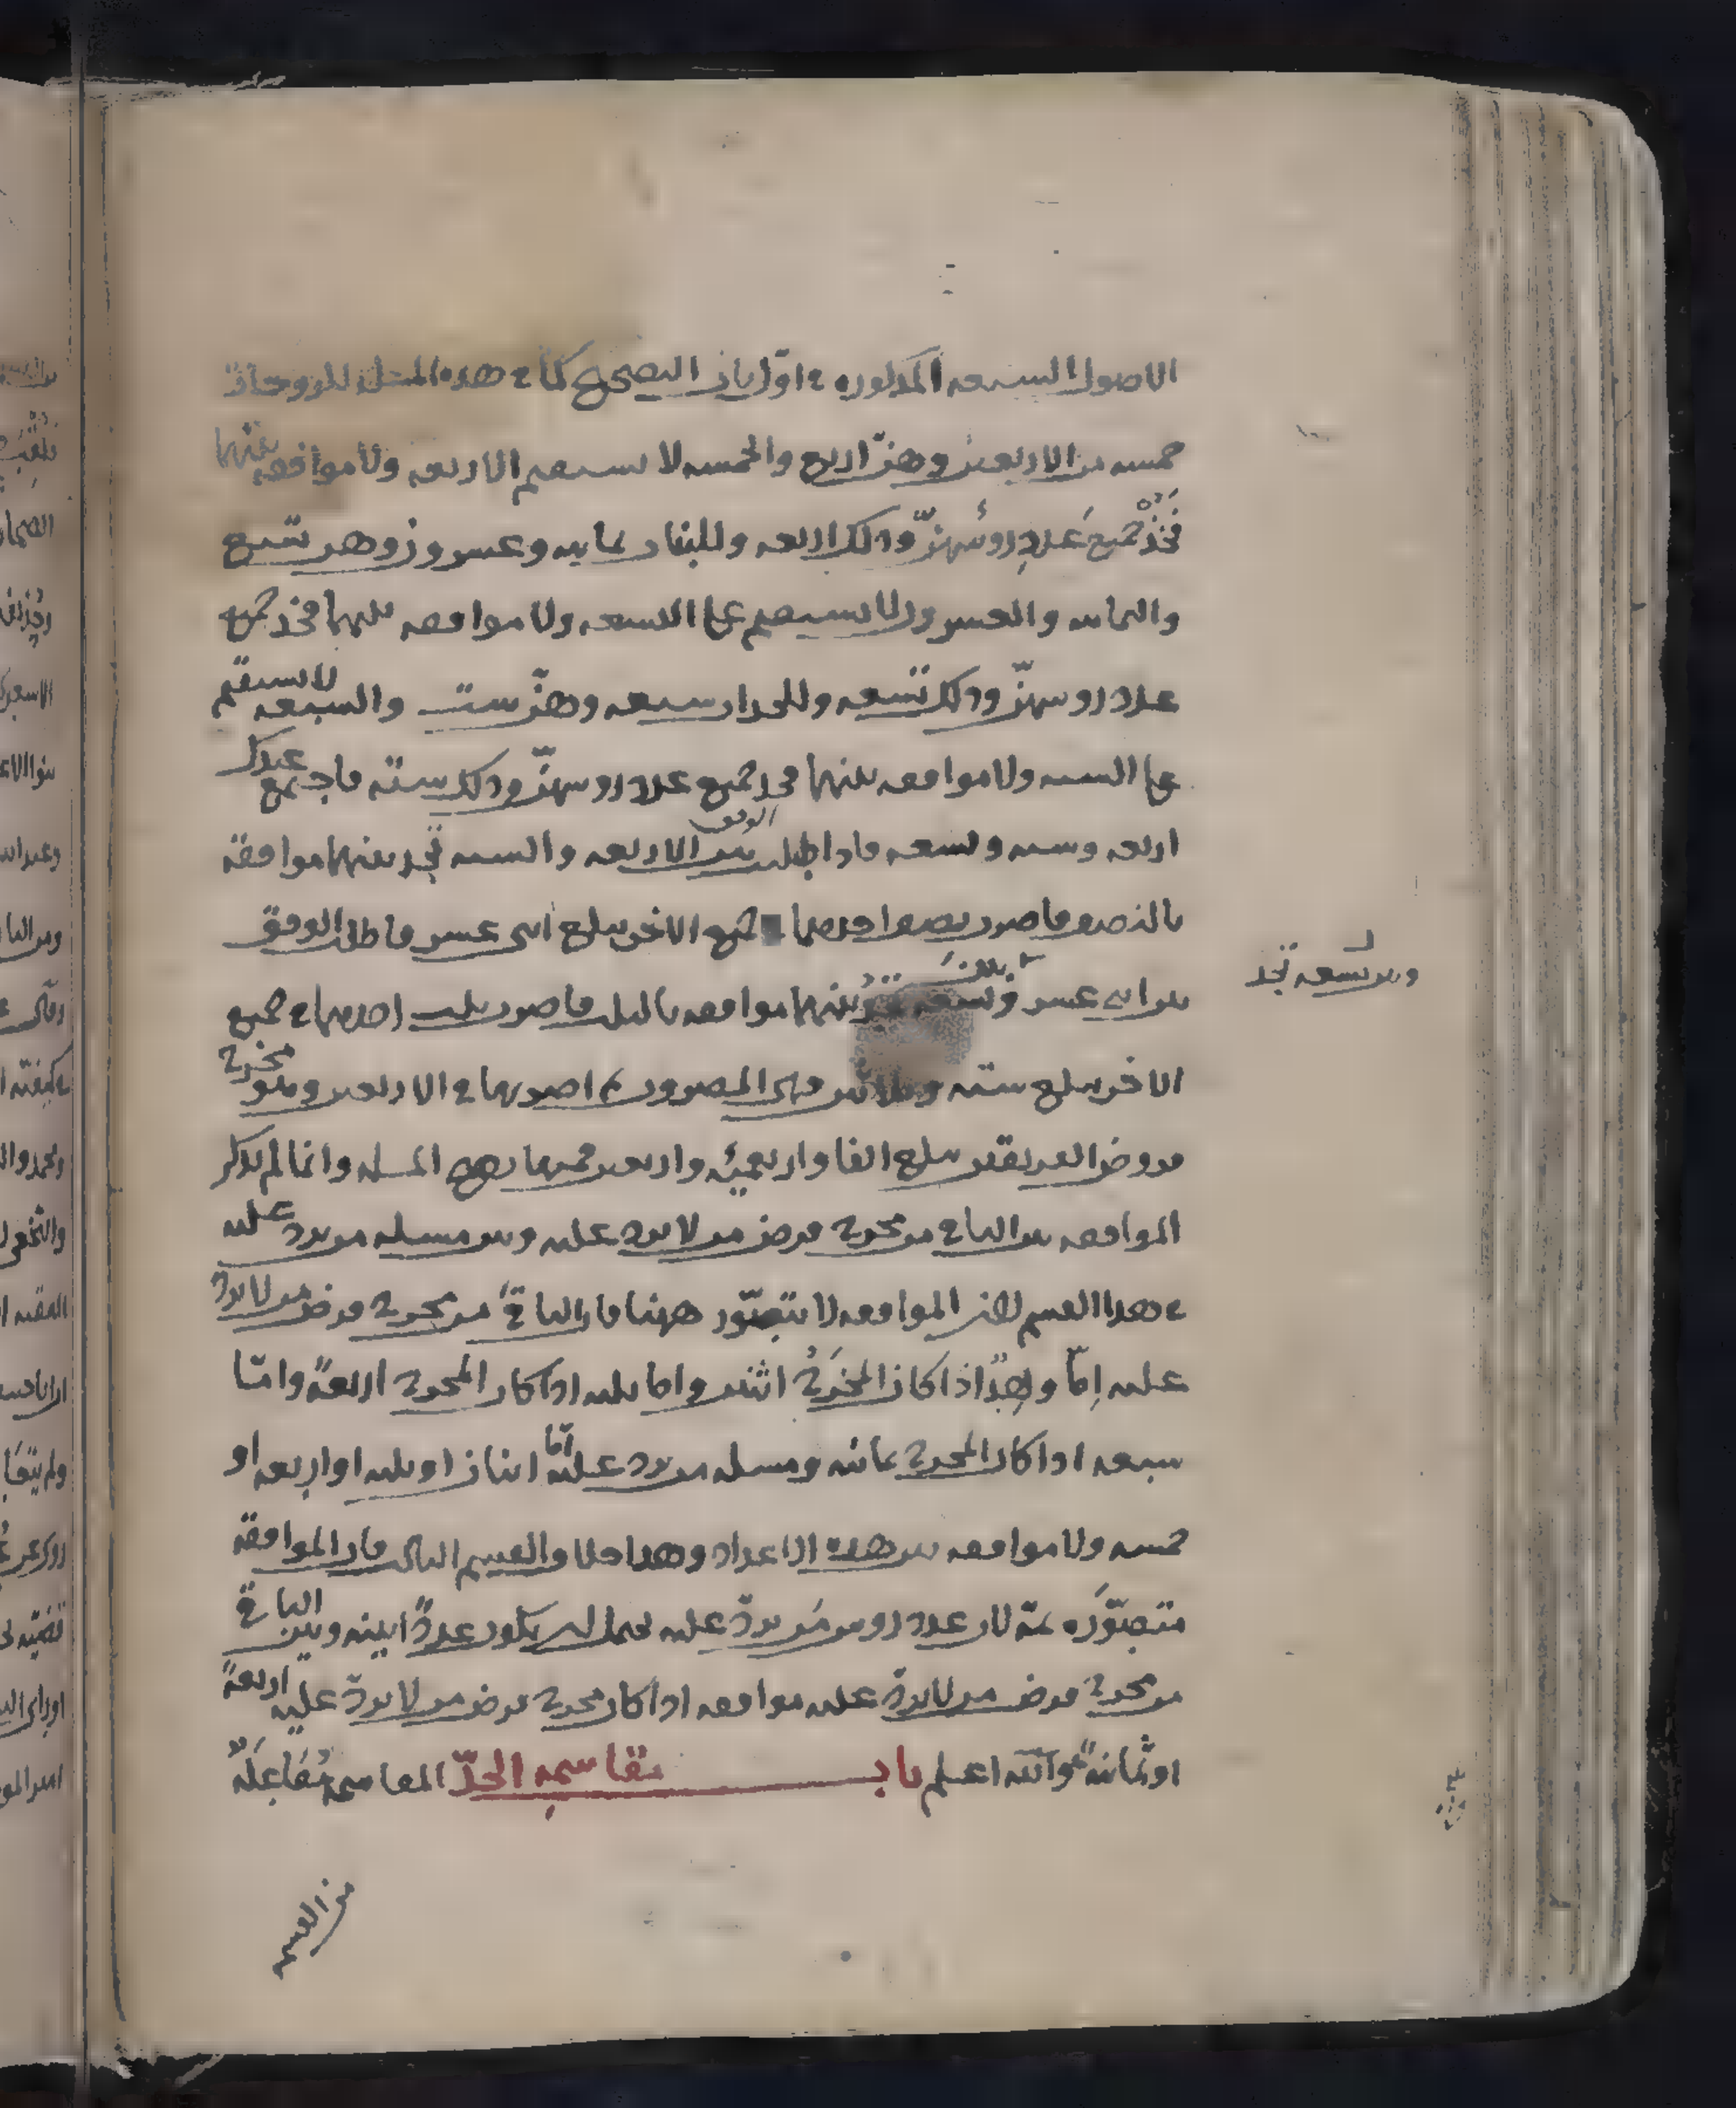 الاصول السبعه المذكوره في اول باب التصحيح كما في هذه المسئلة للزوجات
خمسه من الاربعين وهنّ اربع والخمسه لا تستقيم الاربعه ولا موافقه بينهما
فخذ جميع عدد رؤسهنّ وذلك اربعه وللبنات ثمانيه وعشرون وهن تسع
والثمانيه والعشرون لا تستقيم على التسعه ولا موافقه بينهما فخذ جميع
عدد روسهنّ وذلك تسعه وللجدات سبعه وهنّ ست والسبعه لا تستقيم
على السته ولا موافقه بينهما فخذ جميع عدد روسهنّ وذلك سته فاجتمع عندك
اربعه وسته وتسعه فاذا طلبت الوفق بين الاربعه والسته تجد بينهما موافقة
بالنصف فاضرب نصف احدهما في جميع الاخر يبلغ اثنى عشر فاطلب الوفق
بين اثنى عشر وتسعه بينهما موافقه بالثلث فاضرب ثلث احدهما في جميع
وبين تسعه تجد
الاخر يبلغ سته وثلاثين فهى المضروب ثم اضربها في الاربعين وهو مخرج
فروض الفريقين يبلغ الفا واربعمئه واربعين فمنها تصح المسله وانما لم يذكر
الموافقه بين الباقي من مخرج فرض من لا يرد عليه وبين مسله من يرد عليه
في هذا القسم لان الموافقه لا تتصوّر ههنا فان الباقي من مخرج فرض من لا يرد
عليه اِمّا واحدًا اذا كان المخرج اثنين واما ثلثه اذا كان المخرج اربعةً وامّا
سبعه اذا كان المخرج ثمانيه ومسله من يرد عليه اما اثنان او ثلثه او اربعه او
خمسه ولا موافقه بين هذه الاعداد وهذا خلاف القسم الثانى فان الموافقة
متصوّره ثمّة لان عدد روس من يردّ عليه يحتمل ان يكون عددًا بينه وبين الباقي
من مخرج فرض من لا يردّ عليه موافقه اذا كان مخرج فرض من لا يردّ عليه اربعةً
او ثمانيةً والله اعلم باب مقاسمه الجدّ المقاسمه مُفَاعَلَةٌ
من القسمه